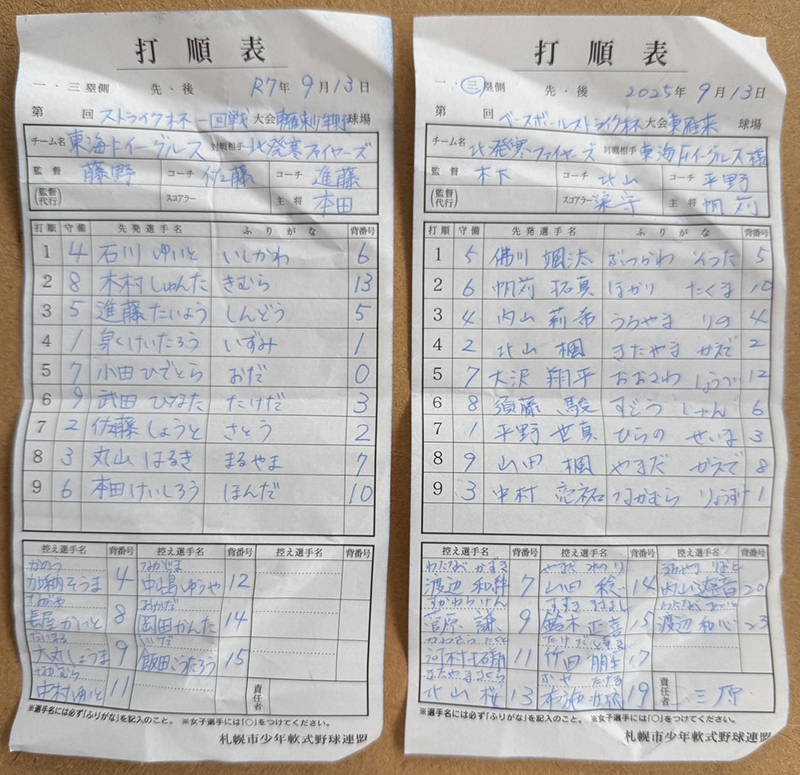 打順表
一・三塁側 先・後 R7年9月13日
第 回 ストライクオネ一回戦 大会 球場
チーム名 東海ドイーグルス 対戦相手 北発寒ファイヤーズ
監督 藤野 コーチ 佐藤 コーチ 進藤
(監督代行) スコアラー 主将 本田
打順 守備 先発選手名 ふりがな 背番号
1 4 石川ゆいと いしかわ 6
2 8 木村しゅんた きむら 13
3 5 進藤たいよう しんどう 5
4 1 けいたろう いずみ 1
5 7 小田ひでとら おだ 0
6 9 武田ひなた たけだ 3
7 2 佐藤しょうと さとう 2
8 3 丸山はるき まるやま 7
9 6 本田けいしろう ほんだ 10
控え選手名 背番号 控え選手名 背番号 控え選手名 背番号
かのう なかじま
加納そうま 4 中島ゆうや 12
おかだ
かいと 8 岡田かんた 14
いいだ
大丸しょうま 9 飯田こうたろう 15
なかむら
中村ゆいと 11
責任者
※選手名には必ず「ふりがな」を記入のこと。 ※女子選手には「○」をつけてください。
札幌市少年軟式野球連盟
打順表
一・三塁側 先・後 2025年9月13日
第 回 ベースボール 杯 大会 東雁来 球場
チーム名 北発寒ファイヤーズ 対戦相手 東海ドイーグルス様
監督 木下 コーチ 北山 コーチ 平野
(監督代行) スコアラー 主将 帆苅
打順 守備 先発選手名 ふりがな 背番号
1 5 佛川颯汰 ぶつかわ そうた 5
2 6 帆苅拓真 ほかり たくま 10
3 4 内山莉希 うちやま りの 4
4 2 北山楓 きたやま かえで 2
5 7 大沢翔平 おおさわ しょうへい 12
6 8 須藤駿 すどう しゅん 6
7 1 平野世真 ひらの せいま 3
8 9 山田楓 やまだ かえで 8
9 3 中村亮祐 なかむら りょうすけ 1
控え選手名 背番号 控え選手名 背番号 控え選手名 背番号
わたなべ かずき
渡辺 7 山田稔 14 内山 20
すがわら けん すずき
菅原謙 9 鈴木正喜 15 渡辺和心 23
河村拓翔 11 竹田朋生 17
きたやま さくら
北山桜 13 布施 19
責任者 三原
※選手名には必ず「ふりがな」を記入のこと。 ※女子選手には「○」をつけてください。
札幌市少年軟式野球連盟